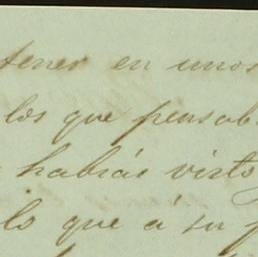 tener en unos
los que pensab
habrás visto
lo que á su